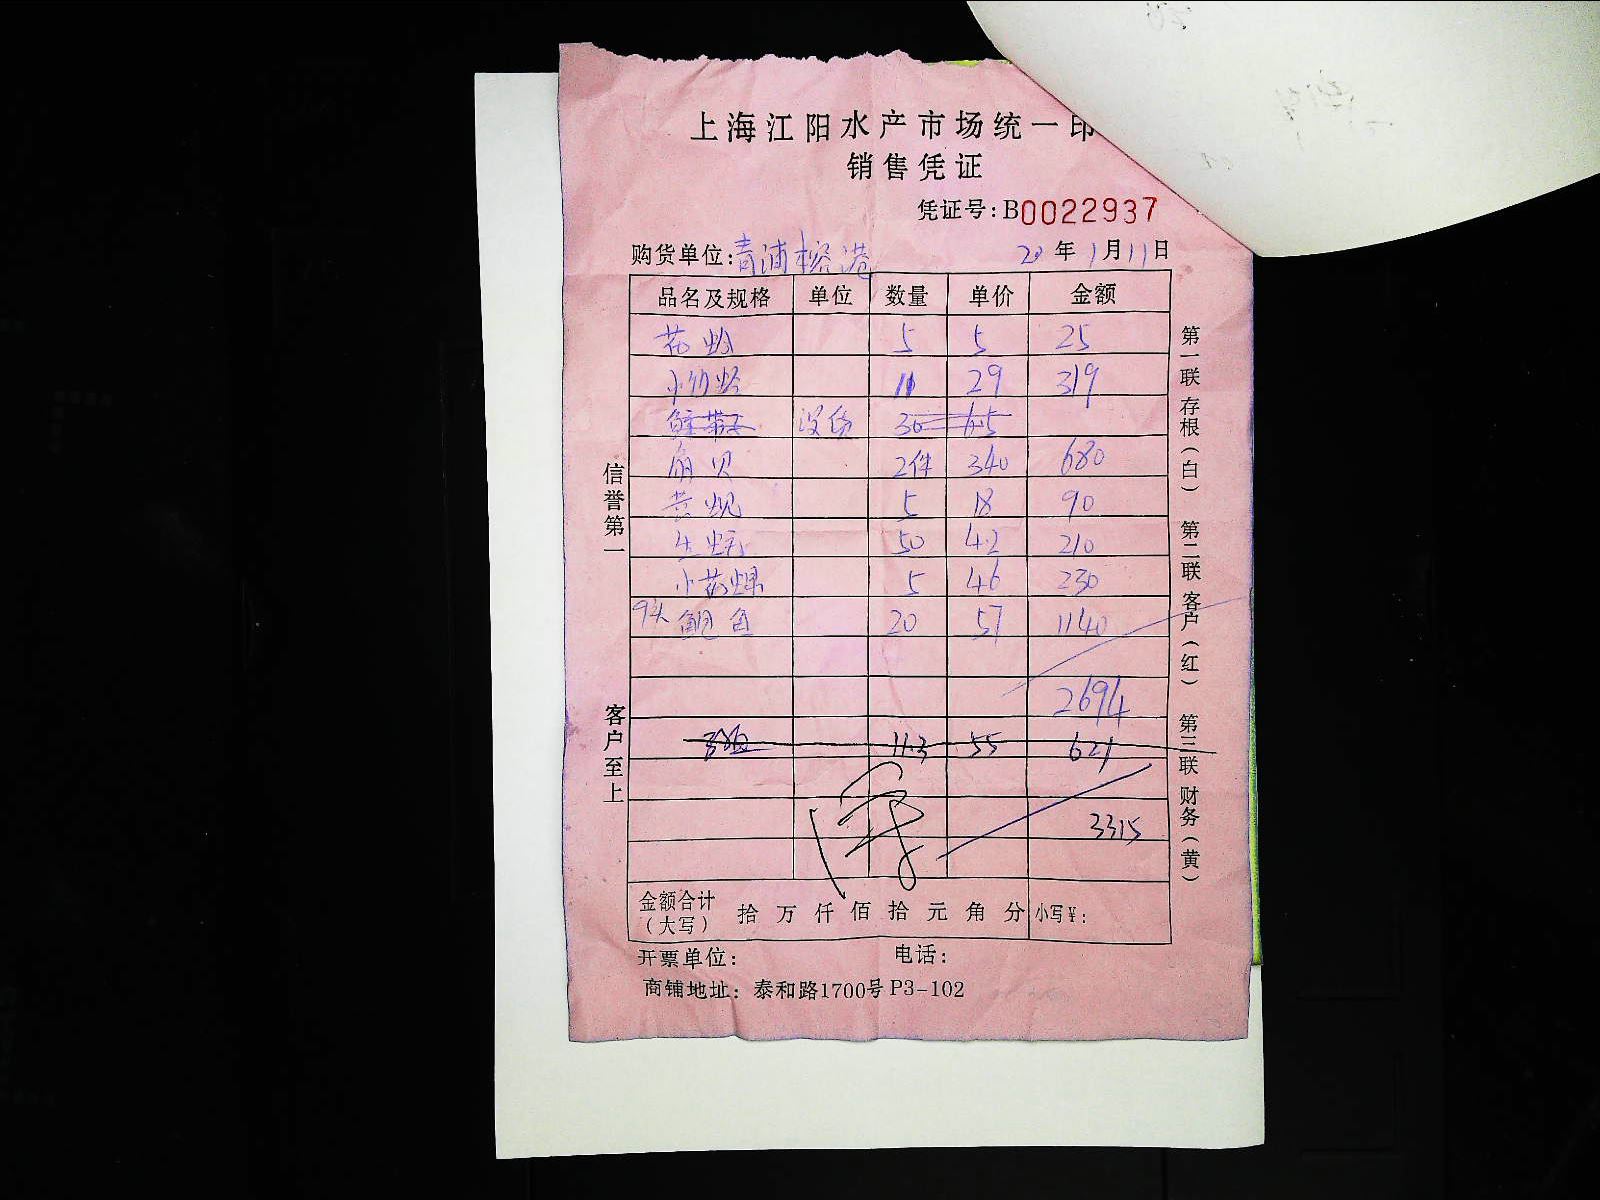 上海江阳水产市场统一印
销售凭证
凭证号:B0022937
购货单位:青浦榕港 20年1月11日
品名及规格 单位 数量 单价 金额
花蛤 5 5 25
小竹蛏 11 29 319
没货 30 6.5
扇贝 2件 340 680
黄蚬 5 18 90
生蚝 50 4.2 210
小花螺 5 46 230
9头 鲍鱼 20 57 1140
2694
11.3 55 621
3315
金额合计(大写) 拾万仟佰拾元角分 小写¥:
开票单位: 电话:
商铺地址:泰和路1700号P3-102
信誉第一
客户至上
第一联存根(白)
第二联客户(红)
第三联财务(黄)